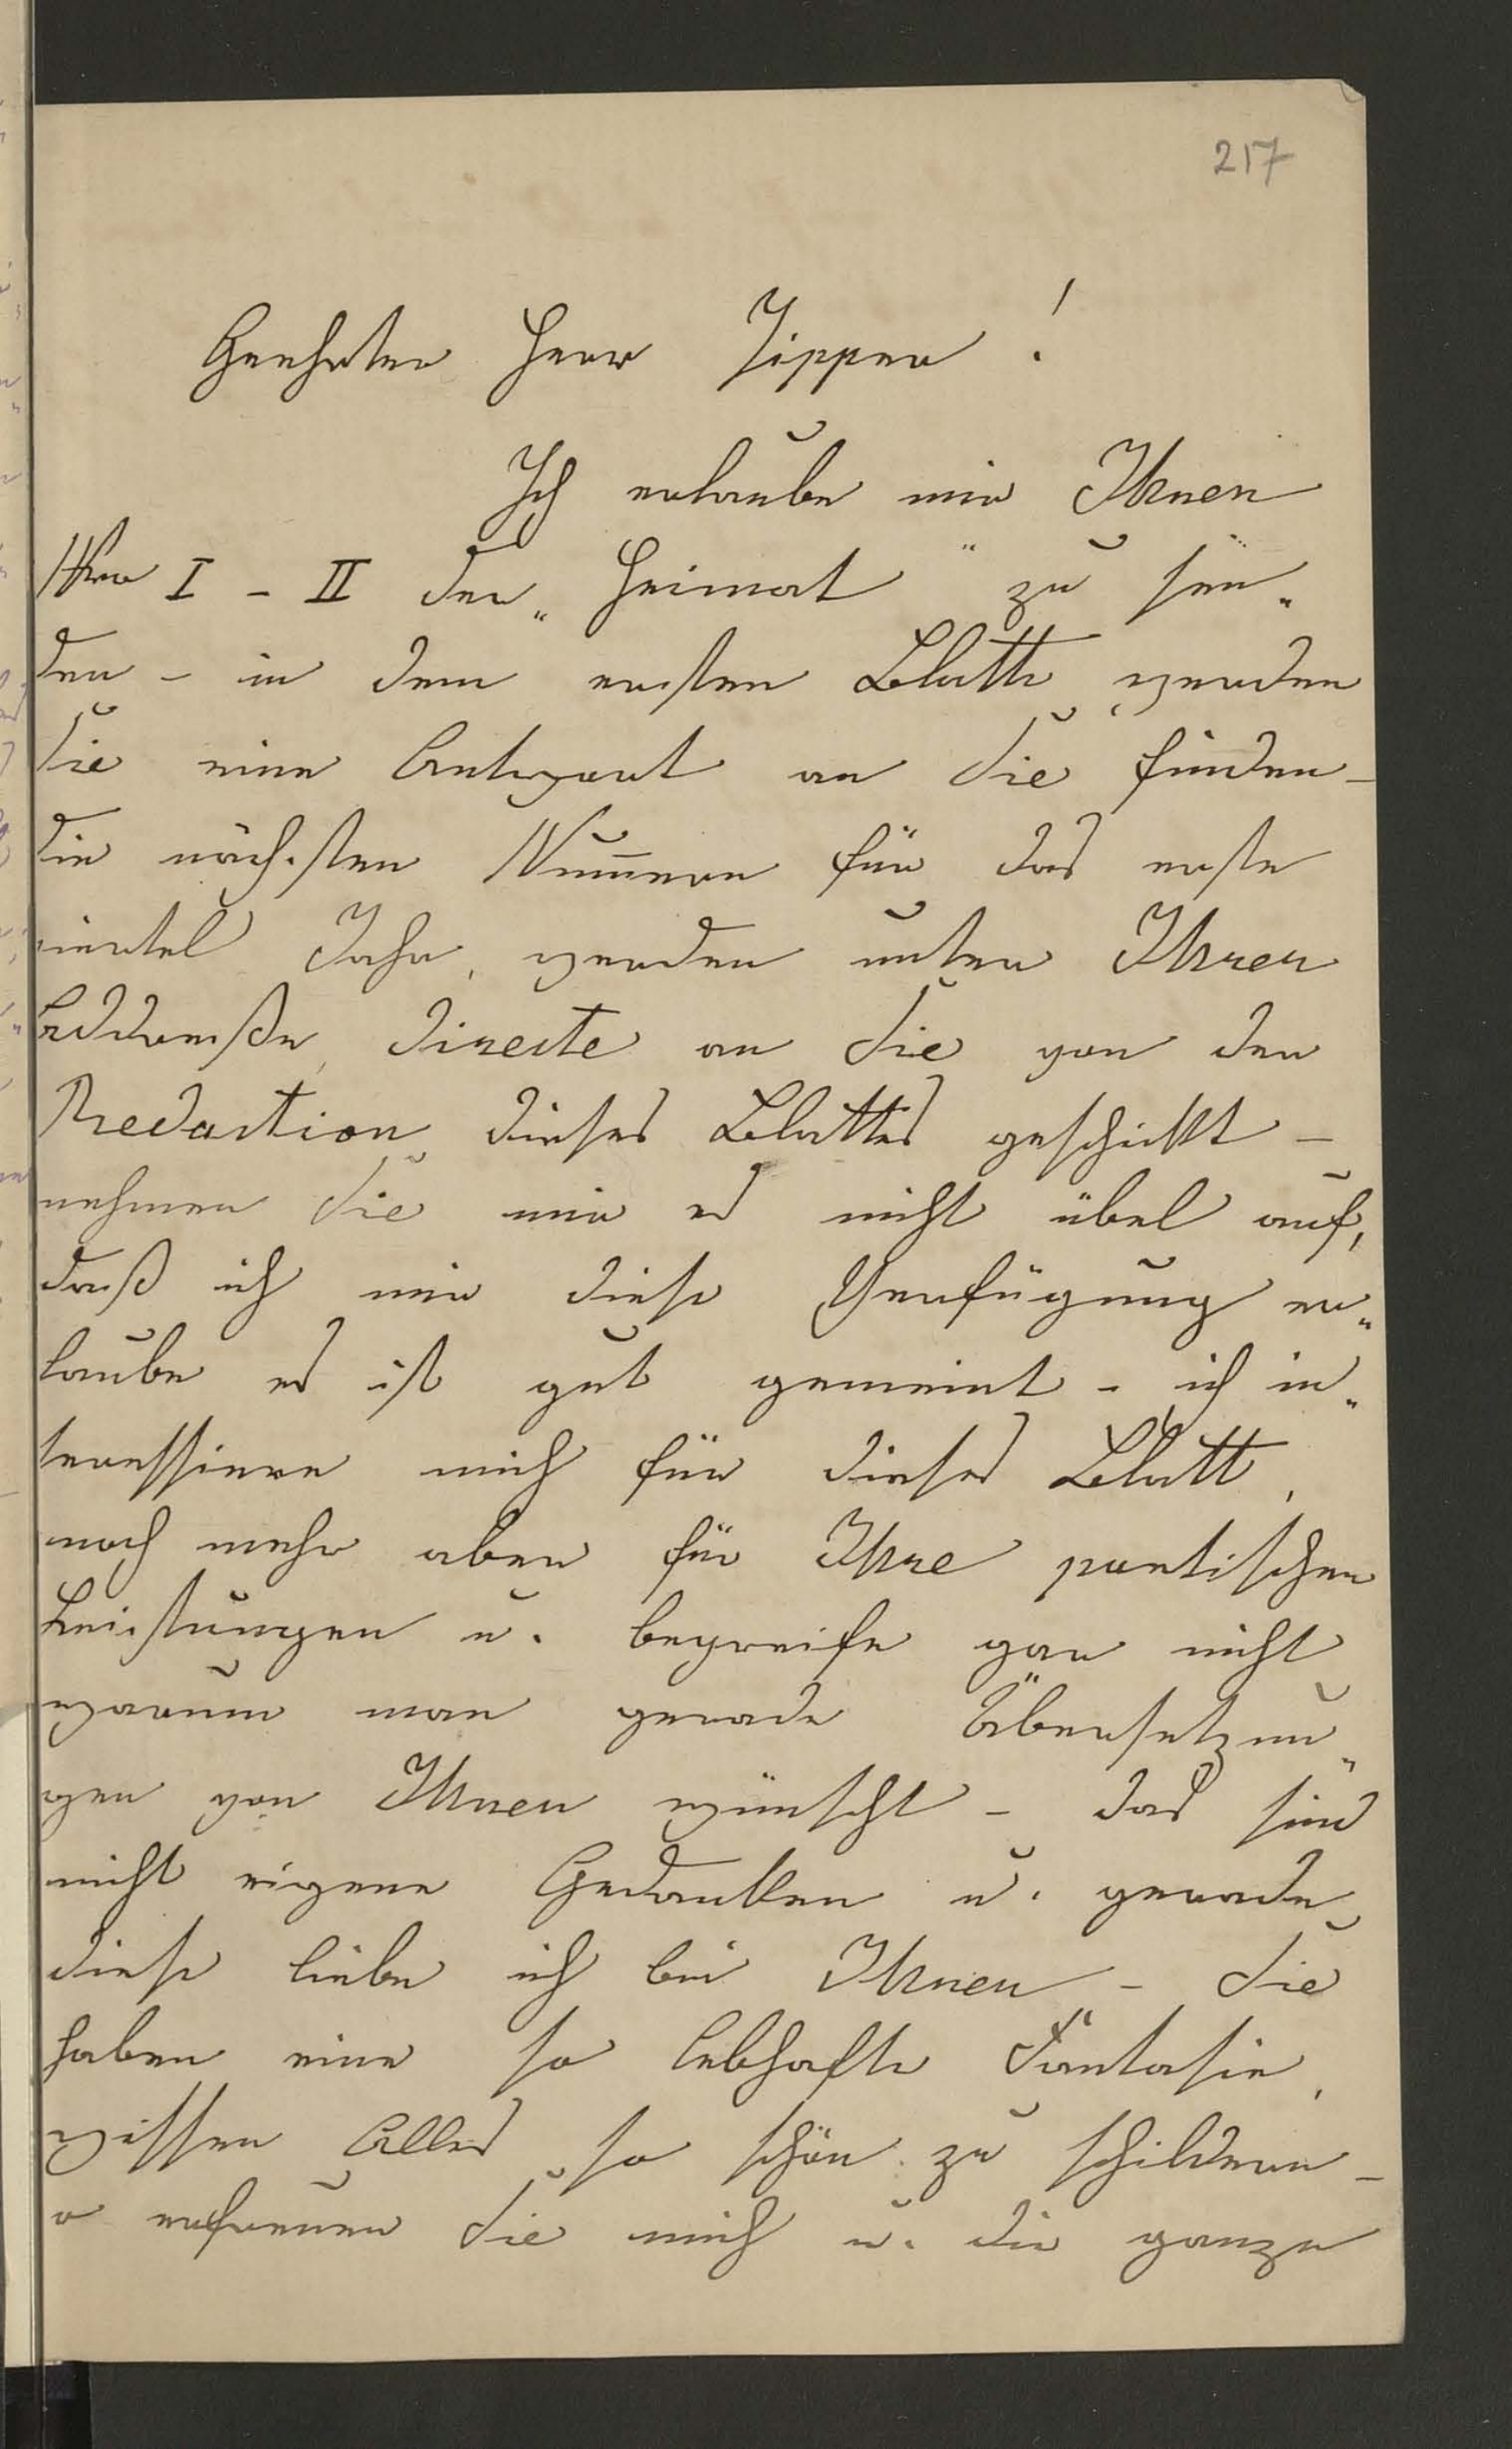 217
Geehrter Herr Zipper!
Ich erlaube mir Ihnen
Nro I - II der „Heimat" zu sen„
den - in dem ersten Blatte werden
Sie eine Antwort an Sie finden -
die nächsten Num̅ern für das erste
viertel Jahr, werden unter Ihrer
Addreße, directe an Sie von der
Redaction dieses Blattes geschickt -
nehmen Sie mir es nicht übel auf,
daß ich mir diese Verfügung er„
laube es ist gut gemeint - ich in„
teressiere mich für dieses Blatt,
noch mehr aber für Ihre poetischen
Leistungen u. begreife gar nicht
warum man gerade Übersetzun„
gen von Ihnen wünscht - das sind
nicht eigene Gedanken u. gerade
diese liebe ich bei Ihnen - Sie
haben eine so lebhafte Fantasie,
wissen Alles so schön zu schildern -
o erfreuen Sie mich u. die ganze